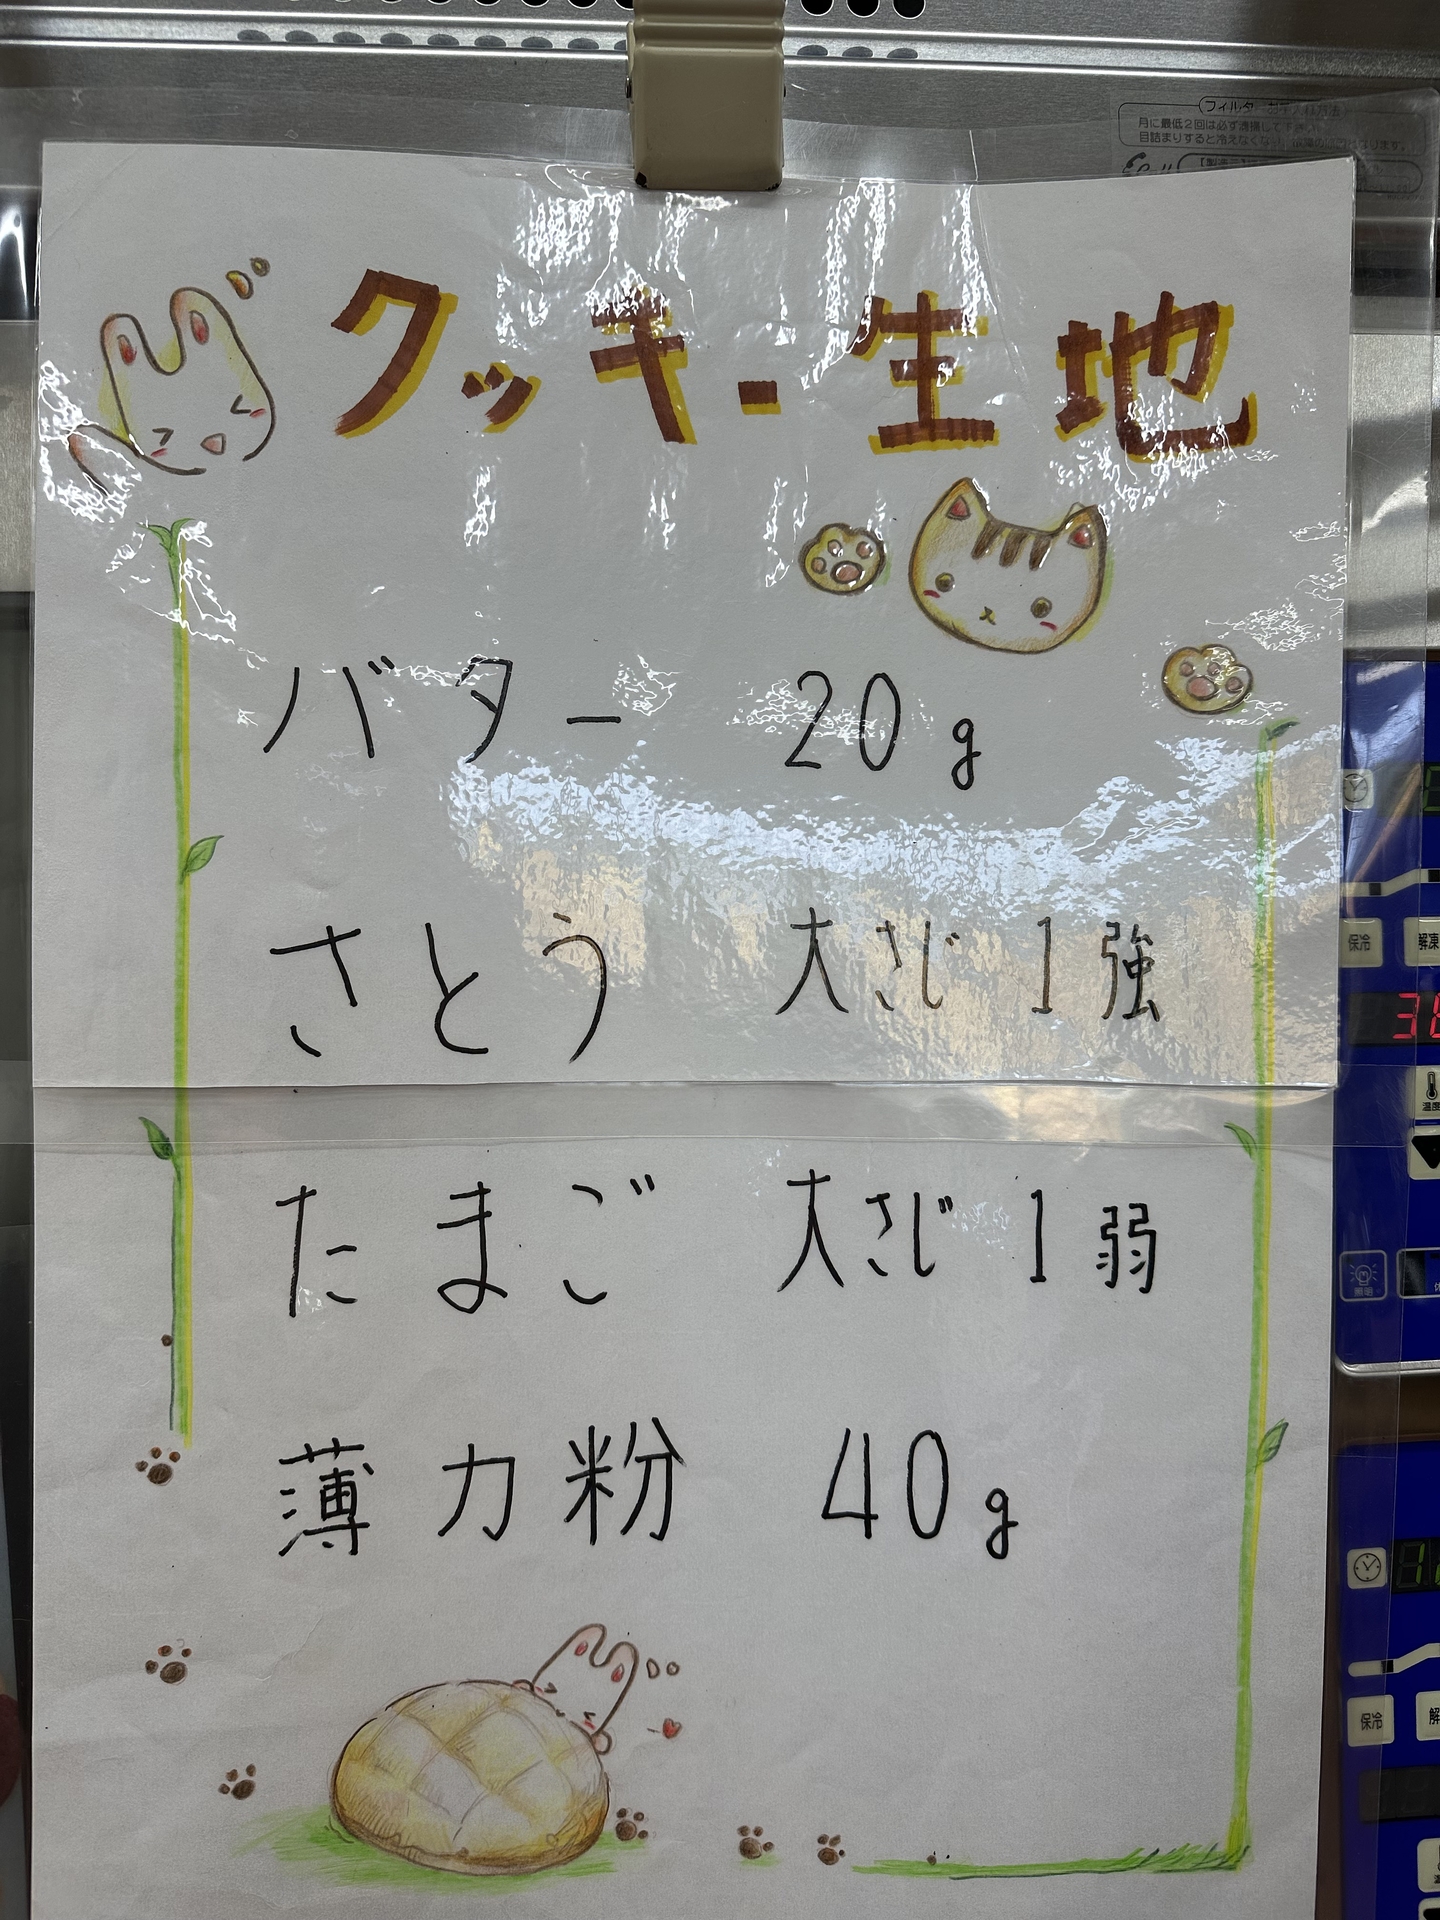 フィルター
月に最低2回は必ず清掃して下さい
目詰まりすると冷えなくな
クッキー生地
バター 20g
さとう 大さじ 1強
たまご 大さじ 1弱
薄力粉 40g
保冷
解凍
温度
照明
保冷
解